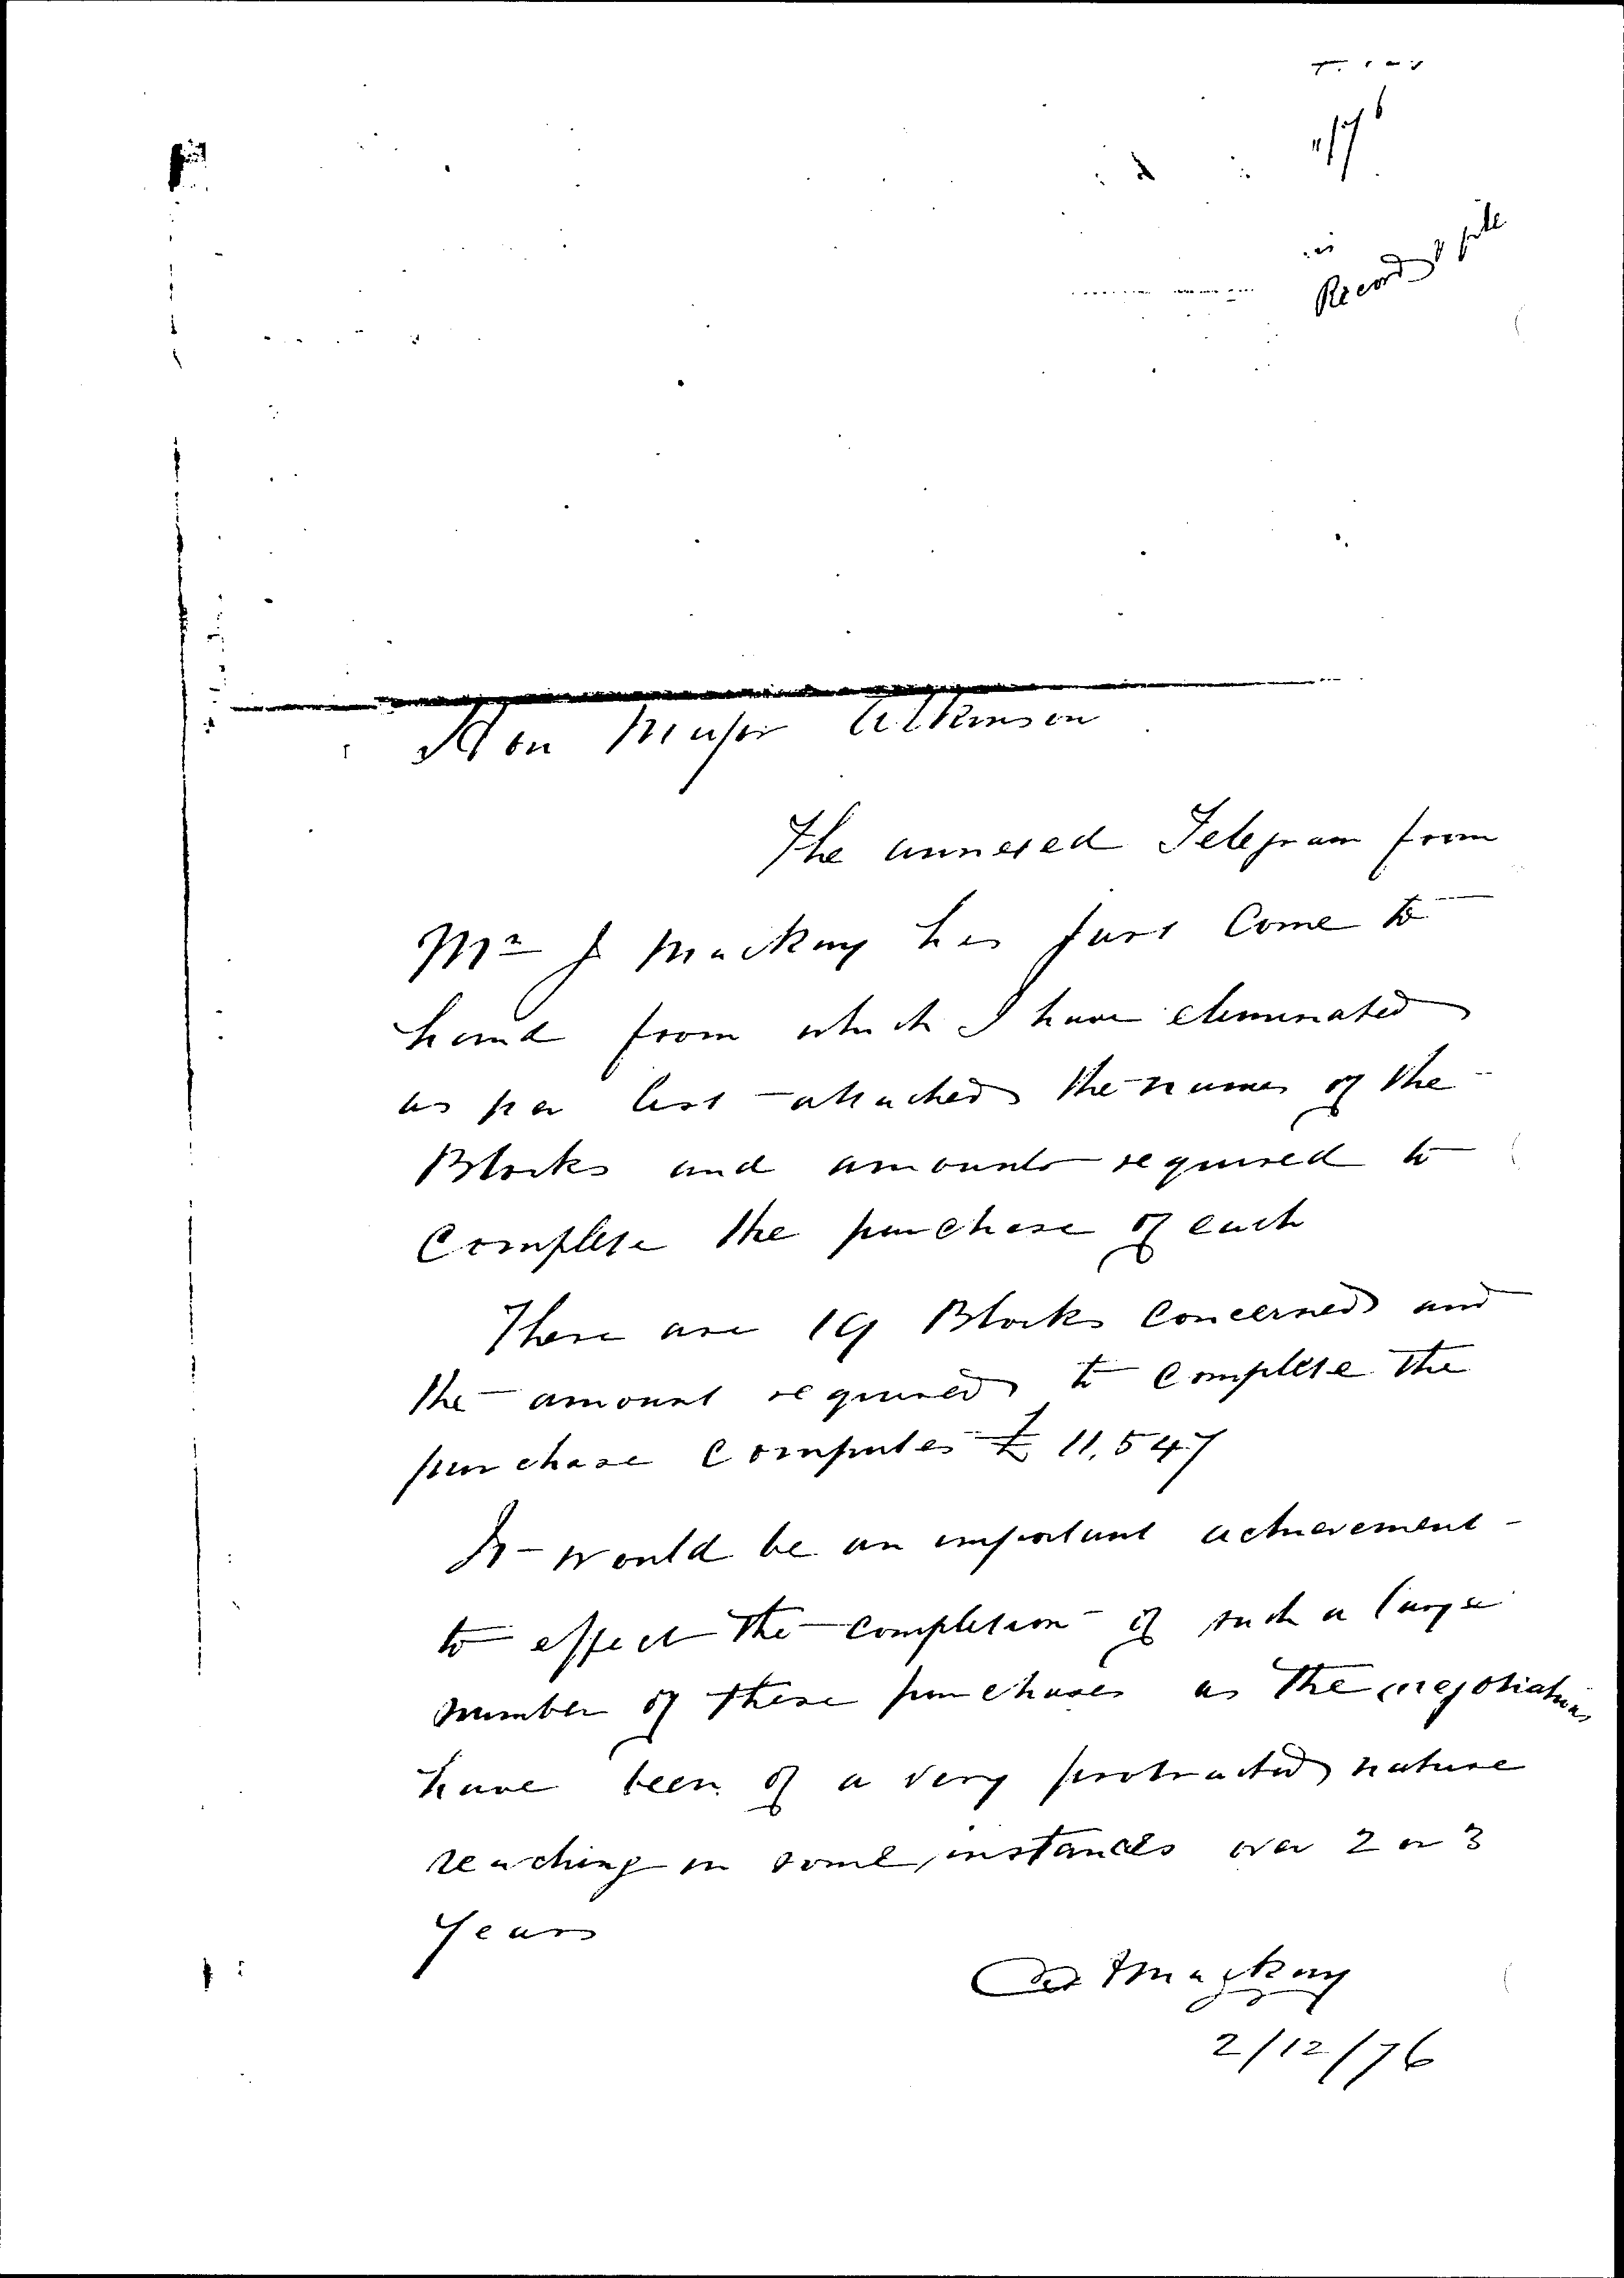 Record & file
Hon Major Atkinson
The annexed Telegram from
Mr J Mackay has just Come to
hand from which I have eliminated
as per list attached the names of the
Blocks and amounts required to
Complete the purchase of each
There are 19 Blocks Concerned and
the amount required to Complete the
purchase Computes £ 11,547
It would be an important achievement
to effect the completion of such a large
number of these purchases as the negotiations
have been of a very protracted nature
reaching in some instances over 2 or 3
Years
Mackay
2/12/76